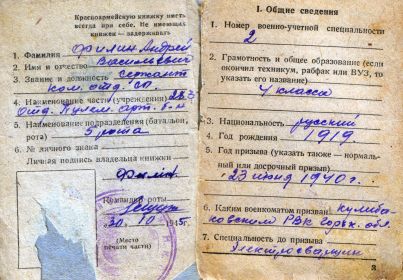 Красноармейскую книжку иметь
всегда при себе. Не имеющих
книжек — задерживать
1. Фамилия Филин Андрей
2. Имя и отчество Васильевич
3. Звание и должность сержант
ком. отд.
4. Наименование части (учреждения) 283
Отд. Пулем. арт. б-н
5. Наименование подразделения (батальон,
рота) 5 рота
6. № личного знака
Личная подпись владельца книжки
Филин
Командир роты
30/10 1945 г.
(Место
печати части)
I. Общие сведения
1. Номер военно-учетной специальности
2
2. Грамотность и общее образование (если
окончил техникум, рабфак или ВУЗ, то
указать его название)
4 класса
3. Национальность русский
4. Год рождения 1919.
5. Год призыва (указать также — нормаль-
ный или досрочный призыв)
23 июня 1940 г.
6. Каким военкоматом призван кулеба-
РВК Горьк. обл.
7. Специальность до призыва
Электросварщик
3